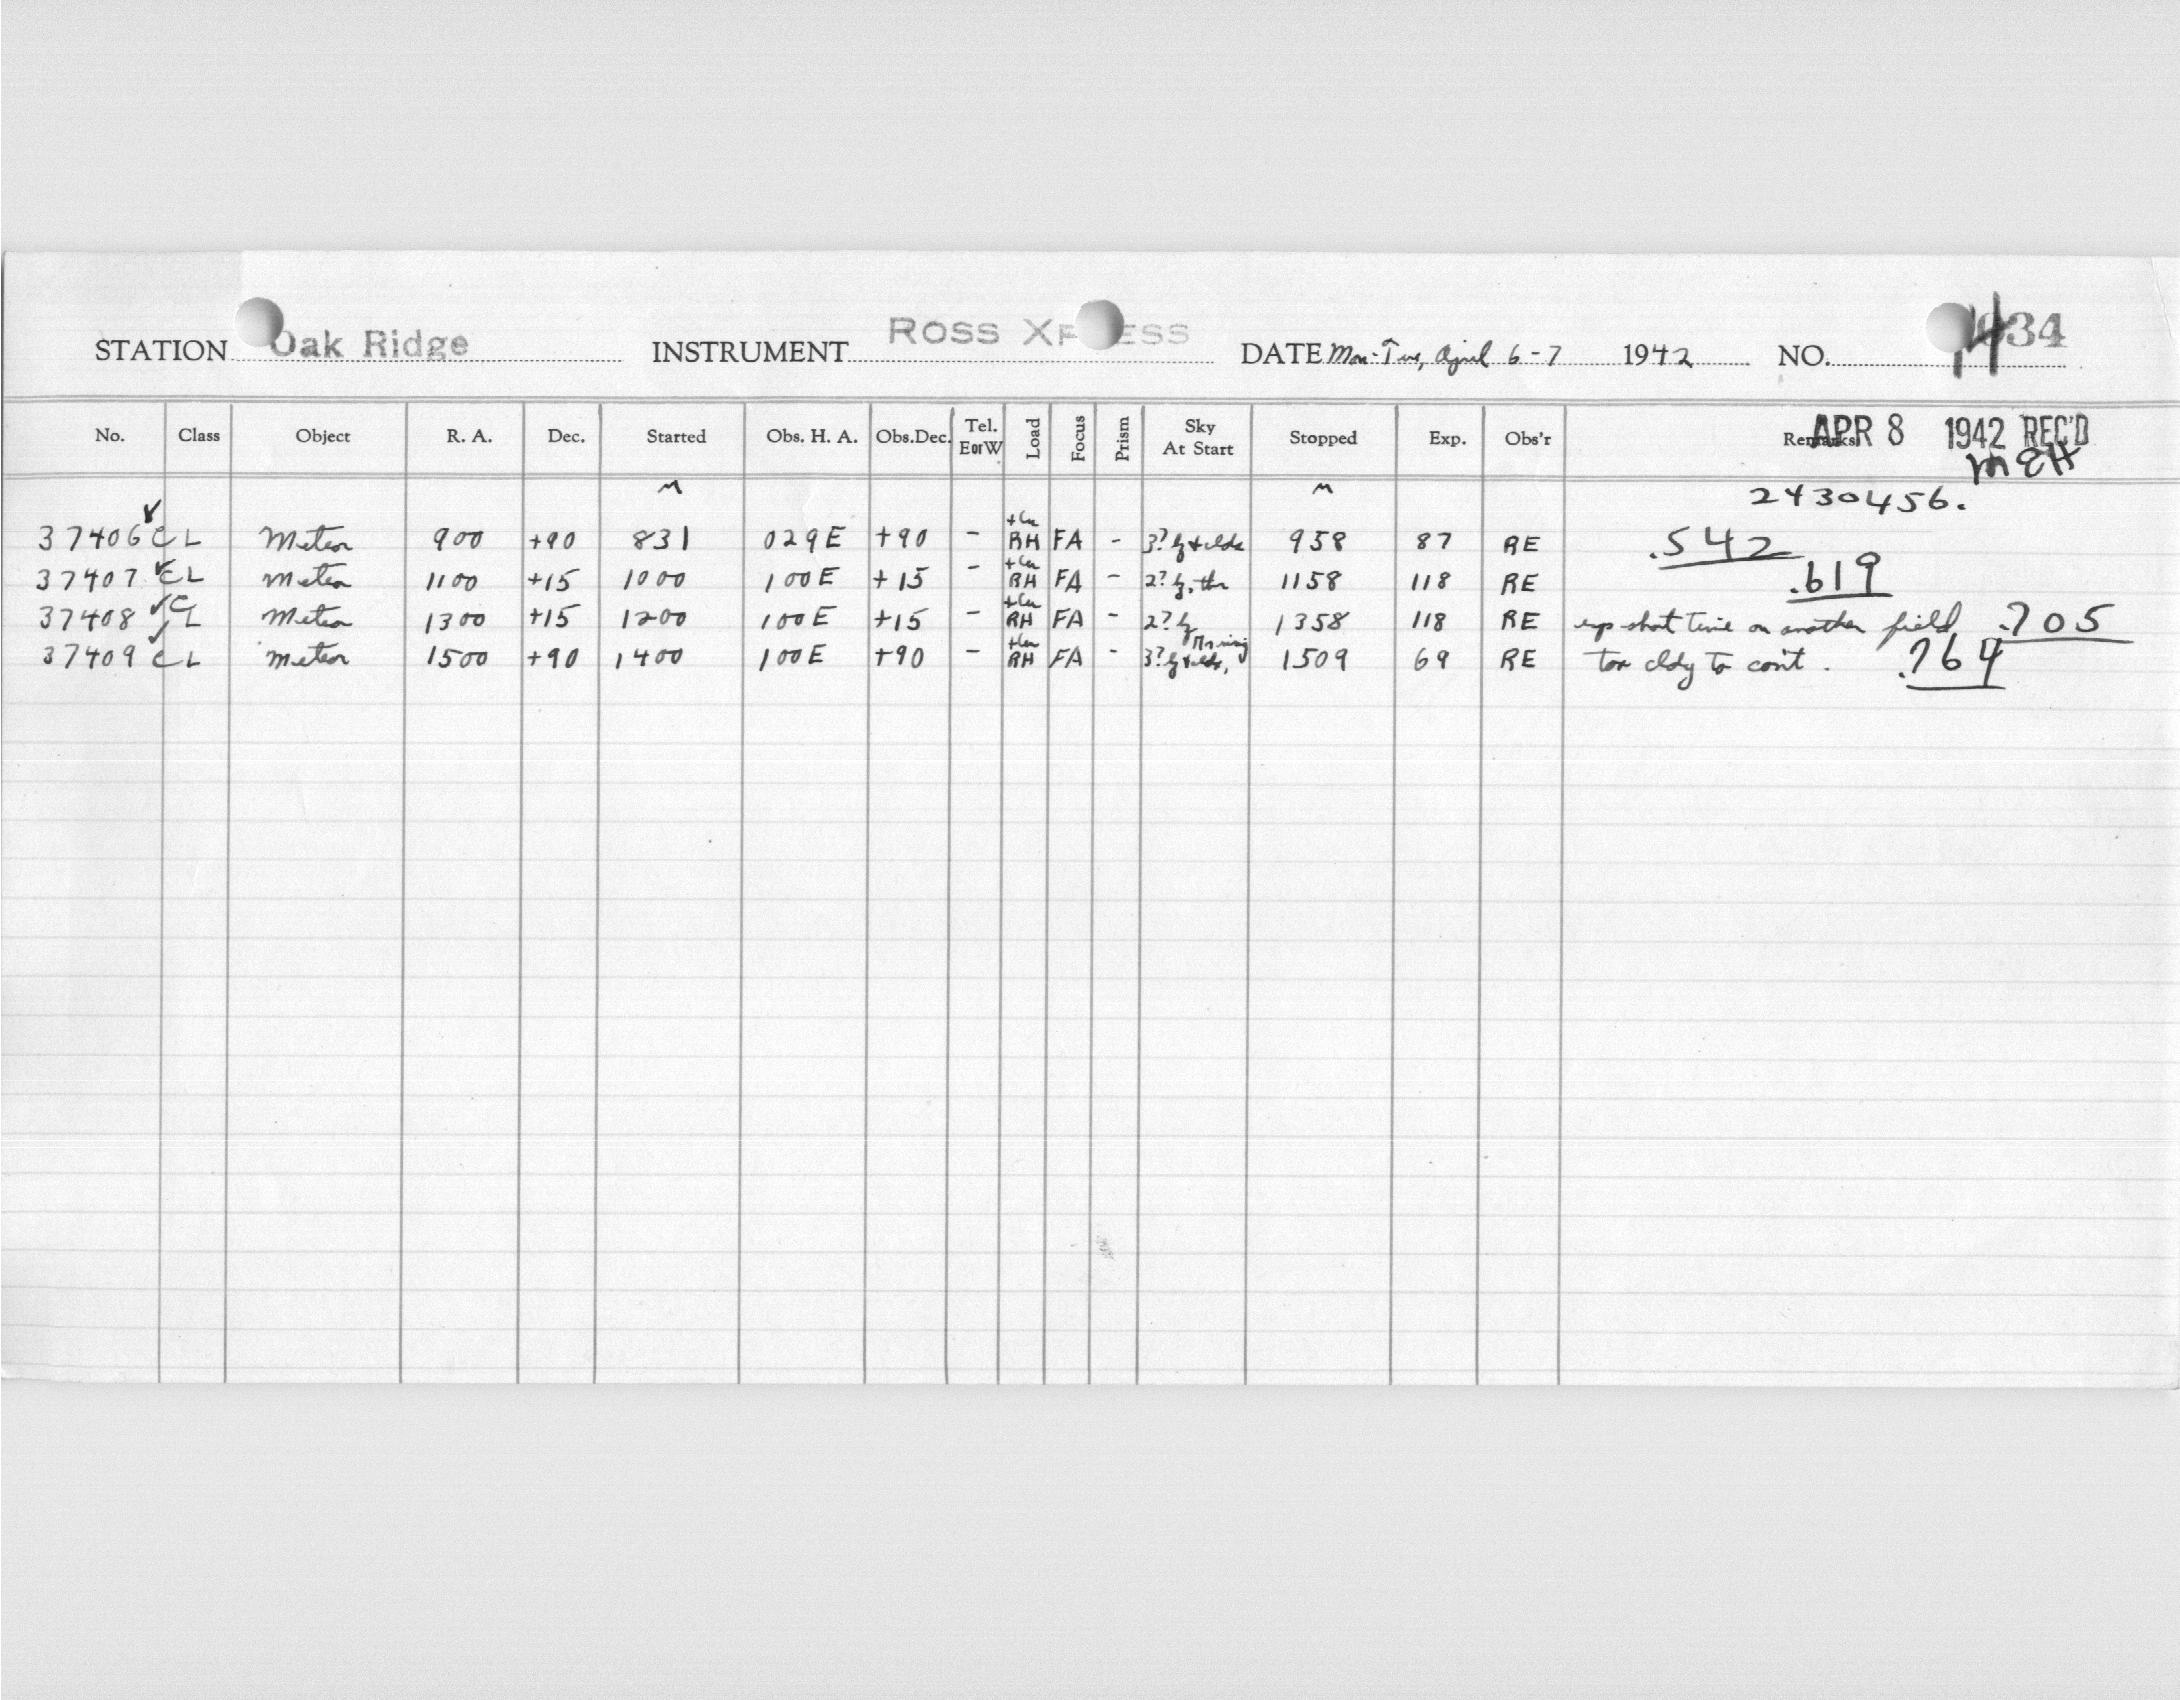 STATION Oak Ridge INSTRUMENT ROSS XPRESS DATE Mon-Tue, April 6-7 1942 NO. 34
No. Class Object R. A. Dec. Started Obs. H. A. Obs.Dec. Tel. EorW Load Focus Prism Sky At Start Stopped Exp. Obs'r Remarks
APR 8 1942 REC'D
MEH
M M 2430456.
37406 CL Meteor 900 +90 831 029E +90 - RH FA - 3? hz + clds 958 87 RE .542
37407 CL Meteor 1100 +15 1000 100E +15 - RH FA - 2? hz, thr 1158 118 RE .619
37408 CL Meteor 1300 +15 1200 100E +15 - RH FA - 2? hz 1358 118 RE exp short time on another field .705
37409 CL Meteor 1500 +90 1400 100E +90 - RH FA - 3? hz + clds, 1509 69 RE too cldy to con't. .764